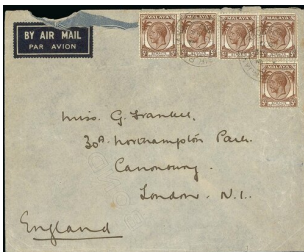 BY AIR MAIL
PAR AVION
MALAYA
MALAYA
MALAYA
MALAYA
MALAYA
Miss. G. Frankel.
30A. Northampton Park.
Canonbury.
London. N.1.
England